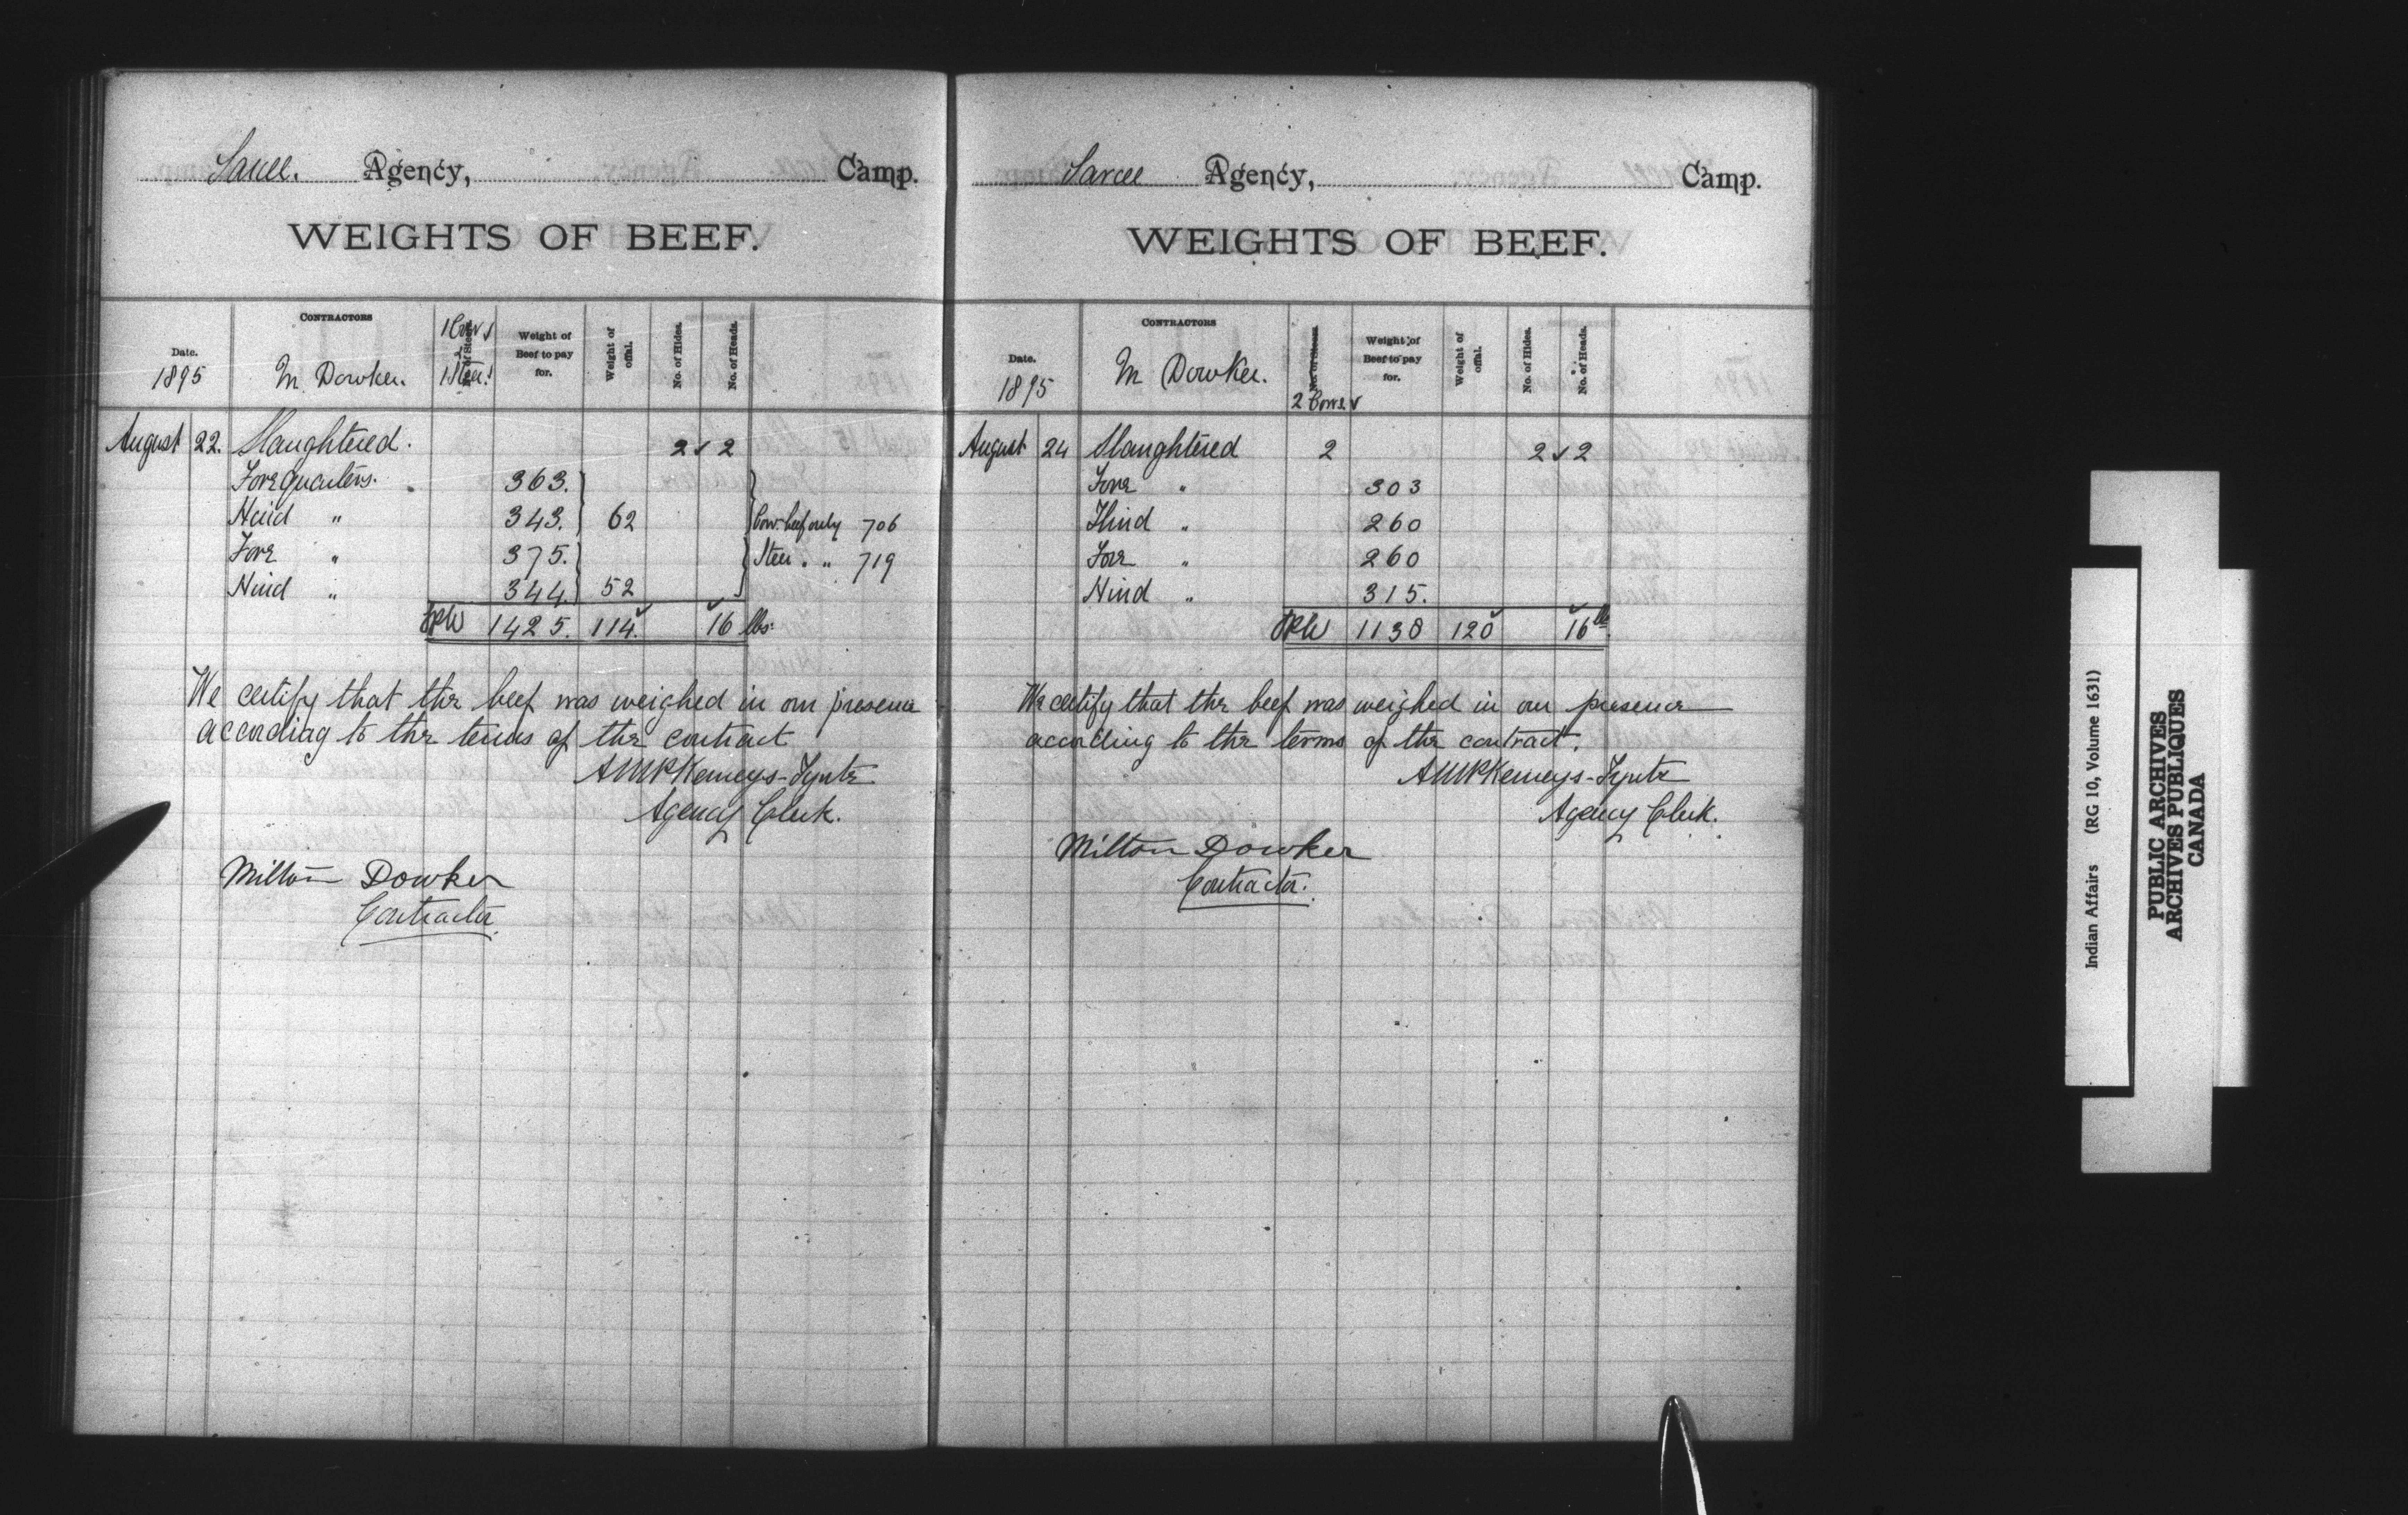 Sarcee. Agency, Camp.
WEIGHTS OF BEEF.
Date. CONTRACTORS No. of Steers. Weight of Beef to pay for. Weight of offal. No. of Hides. No. of Heads.
1895 M Dowker. 1 Cow 1 Steer
August 22. Slaughtered. 2 2
Forequarters. 363.
Hind " 343. 62 Cow beef only 706
Fore " 375. Steer " " 719
Hind " 344. 52
1425. 114. 16 lbs.
We certify that the beef was weighed in our presence
according to the terms of the contract
AMPKemeys-Tynte
Agency Clerk.
Milton Dowker
Contractor.
Sarcee Agency, Camp.
WEIGHTS OF BEEF.
Date. CONTRACTORS No. of Steers. Weight of Beef to pay for. Weight of offal. No. of Hides. No. of Heads.
1895 M Dowker. 2 Cows
August 24 Slaughtered 2 2 2
Fore " 303
Hind " 260
Fore " 260
Hind " 315.
1138 120 16 lb
We certify that the beef was weighed in our presence
according to the terms of the contract.
AMPKemeys-Tynte
Agency Clerk.
Milton Dowker
Contractor.
Indian Affairs (RG 10, Volume 1631)
PUBLIC ARCHIVES
ARCHIVES PUBLIQUES
CANADA